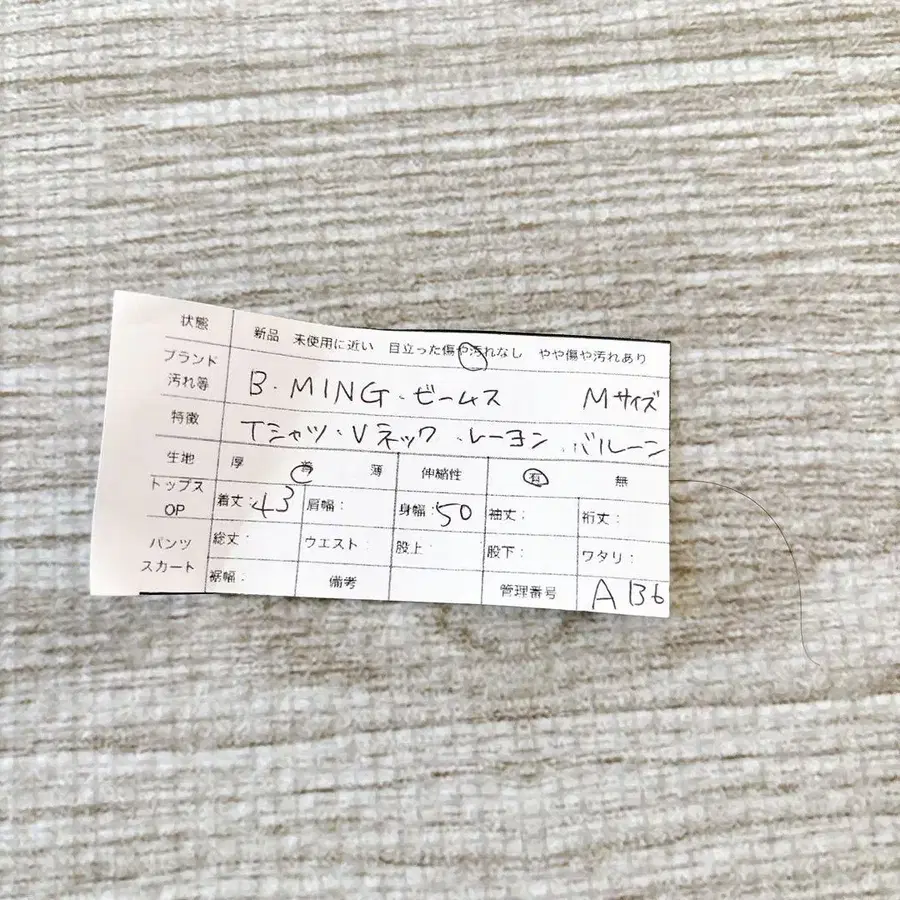 状態 新品 未使用に近い 目立った傷や汚れなし やや傷や汚れあり
ブランド
汚れ等 B.MING.ビームス Mサイズ
特徴 Tシャツ.Vネック.レーヨン.バルーン
生地 厚 普 薄 伸縮性 有 無
トップス
OP 着丈:43 肩幅: 身幅:50 袖丈: 裄丈:
パンツ
スカート 総丈: ウエスト: 股上: 股下: ワタリ:
裾幅: 備考 管理番号 A136